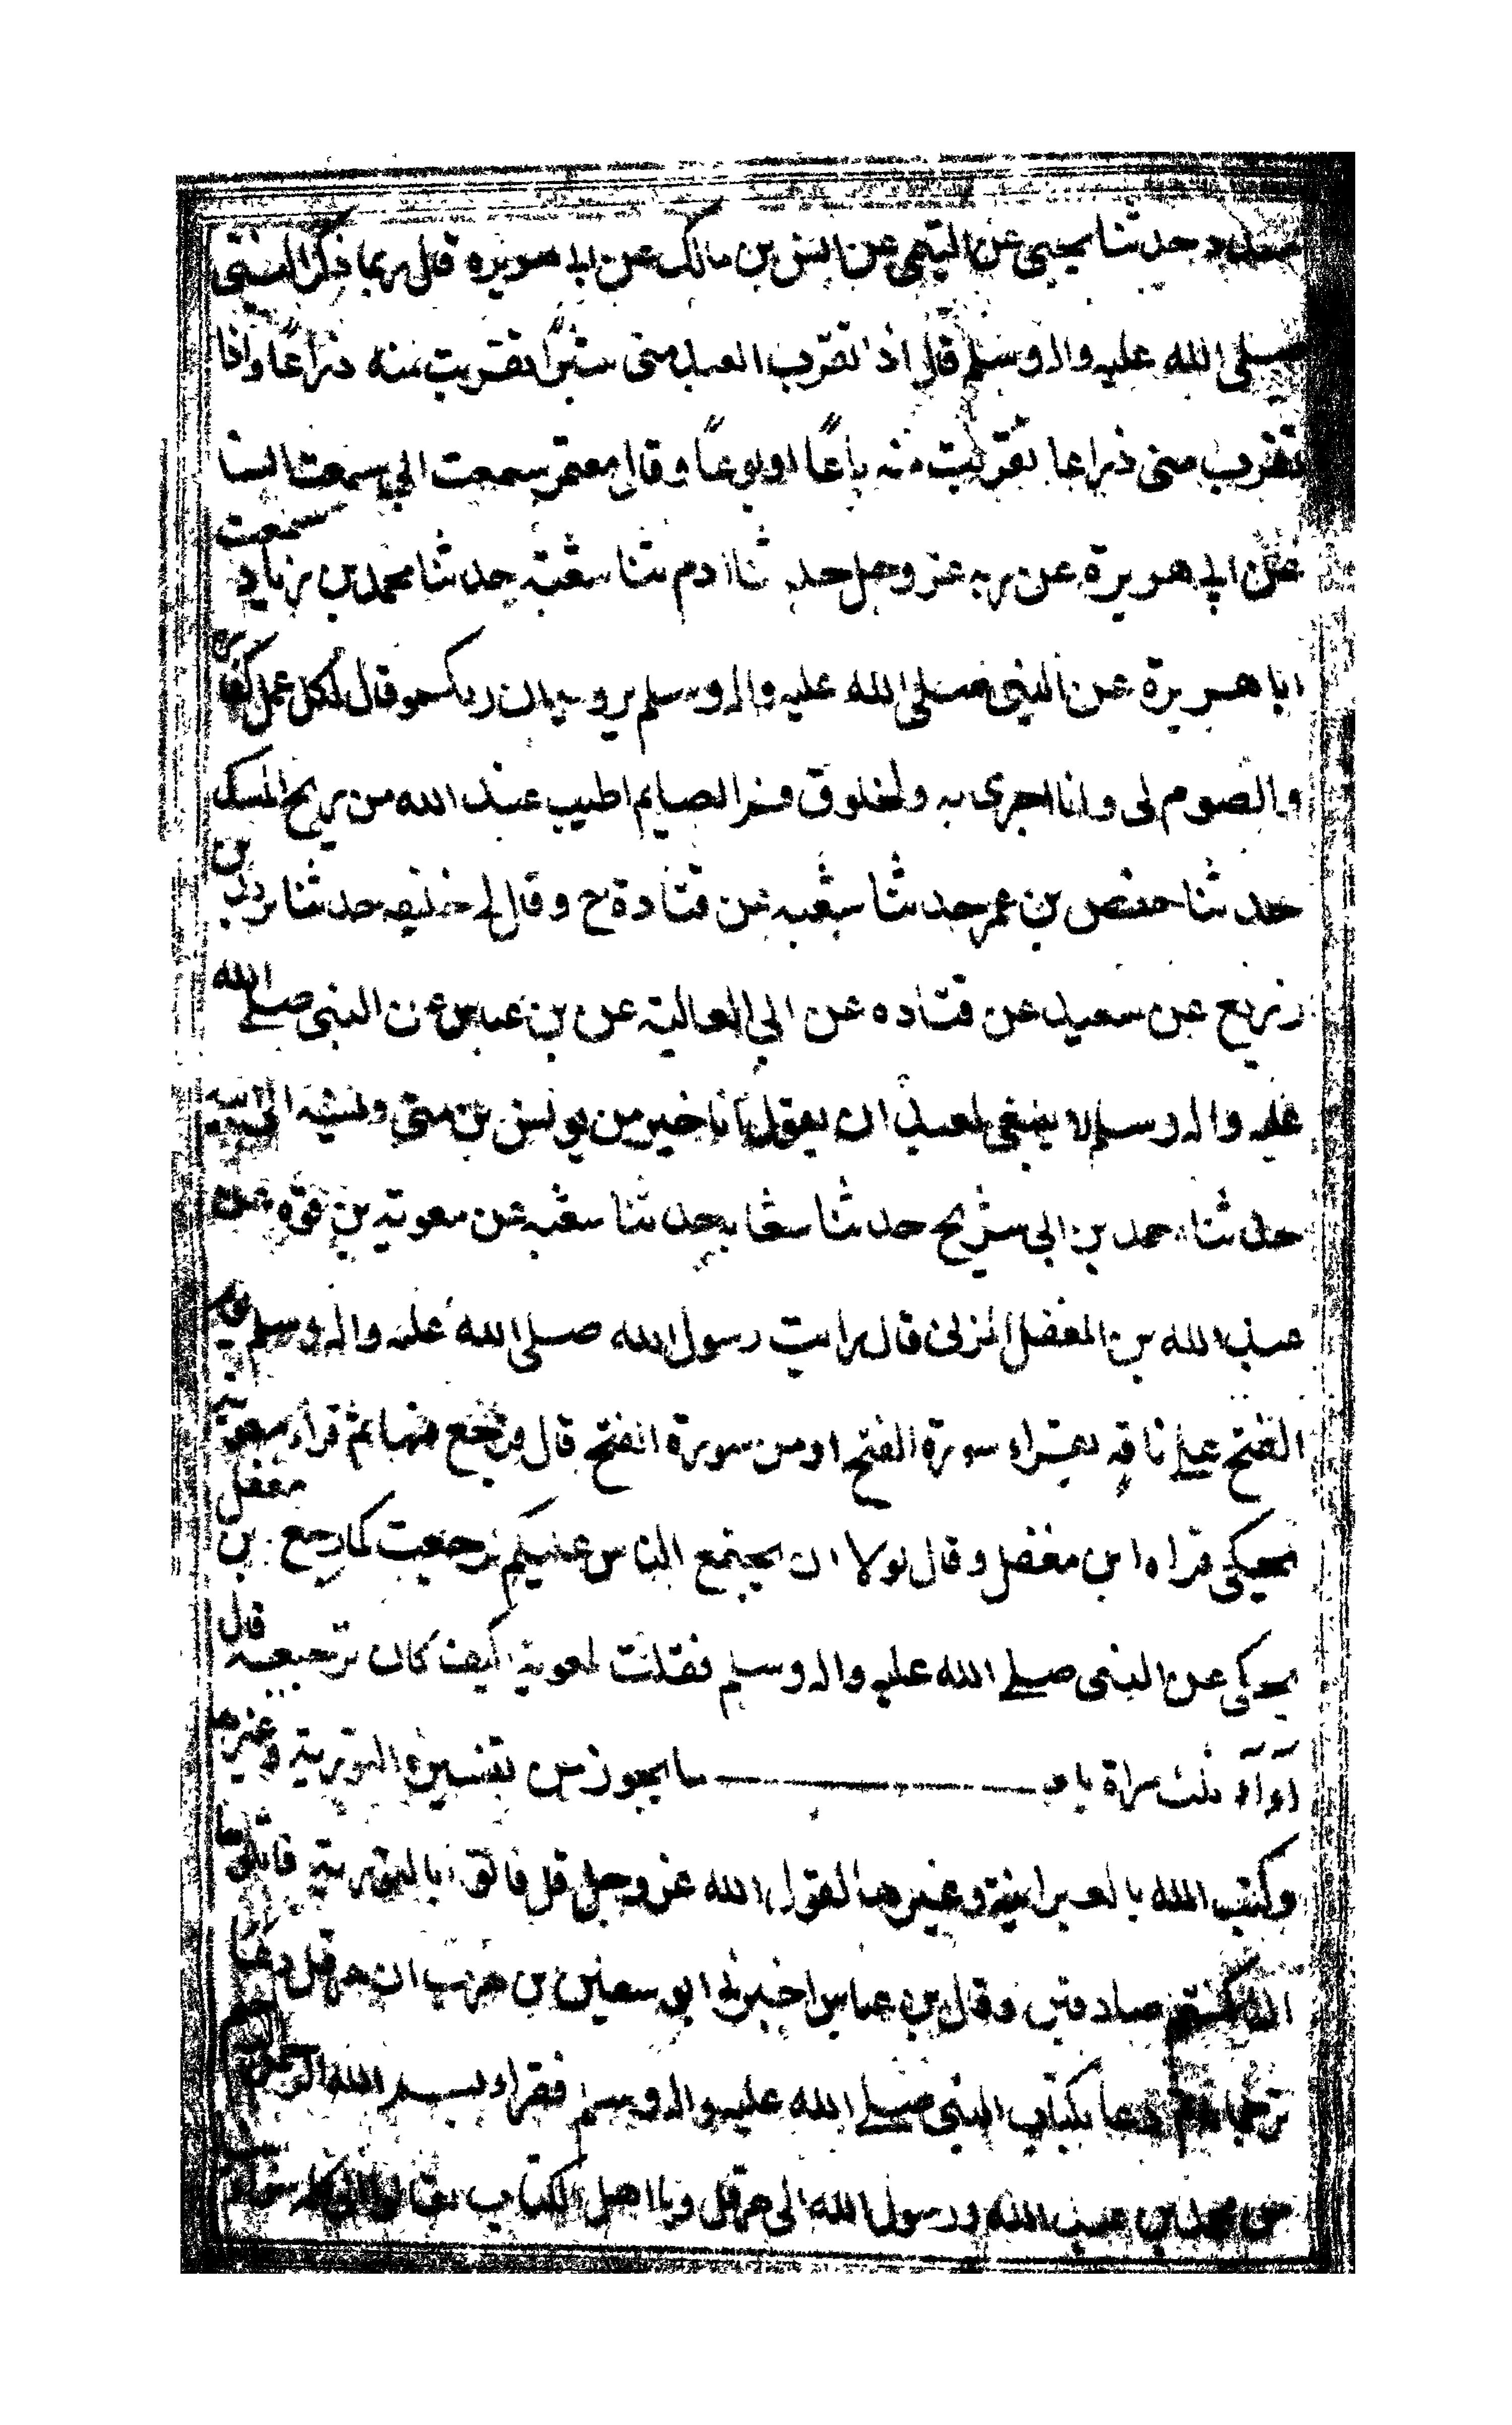 مسدد حدثنا يحيى عن التيمي عن انس بن مالك عن ابي هريره قال ربما ذكر النبي
صلى الله عليه واله وسلم قال اذا تقرب العبد مني شبرًا تقربت منه ذراعًا واذا
تقرب مني ذراعا تقربت منه باعًا او بوعًا وقال معتمر سمعت ابي سمعت انسا
عن ابي هريرة عن ربه عز وجل حدثنا ادم ثنا شعبة حدثنا محمد بن زياد سمعت
ابا هريرة عن النبي صلى الله عليه واله وسلم يرويه عن ربكم قال لكل عمل كفارة
والصوم لي وانا اجزى به ولخلوف فم الصايم اطيب عند الله من ريح المسك
حدثنا حفص بن عمر حدثنا شعبه عن قتادة ح وقال لي خليفه حدثنا يزيد بن
زريع عن سعيد عن قتاده عن ابي العالية عن بن عباس عن النبي صلى الله
عليه واله وسلم لا ينبغي لعبد ان يقول انا خير من يونس بن متى ونسبه الى ابيه
حدثنا احمد بن ابي سريح حدثنا شبابه حدثنا شعبه عن معوية بن قره عن
عبد الله بن المغفل المزني قال رايت رسول الله صلى الله عليه واله وسلم يوم
الفتح على ناقه يقراء سورة الفتح او من سورة الفتح قال فرجع فيها ثم قراء معوية
يحيكى قراه ابن مغفل وقال لولا ان يجتمع الناس عليكم لرجعت كما رجع بن مغفل
يحكى عن النبي صلى الله عليه واله وسلم فقلت لمعوية كيف كان ترجيعه قال
آ آ آ ثلث مراة باب ما يجوز من تفسير التورية وغيرها
وكتب الله بالعبرانية وغيرها لقول الله عز وجل قل فاتوا بالتورية فاتلوها
ان كنتم صادقين وقال بن عباس اخبرني ابو سفين بن حرب ان هرقل دعا
ترجمانه ثم دعا بكتاب النبي صلى الله عليه واله وسلم فقراء بسم الله الرحمن الرحيم
من محمد بن عبد الله ورسول الله الى هرقل ويا اهل الكتاب تعالوا الى كلمة سواء